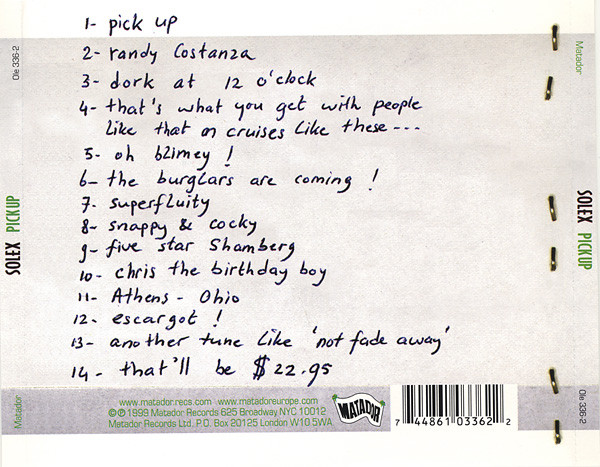 1- pick up
2- randy Costanza
3- dork at 12 o'clock
4- that's what you get with people
like that on cruises like these---
5- oh blimey !
6- the burglars are coming !
7- superfluity
8- snappy & cocky
9- five star Shamberg
10- chris the birthday boy
11- Athens - Ohio
12- escargot !
13- another tune like 'not fade away'
14- that'll be $22.95
www.matador.recs.com www.matadoreurope.com
©℗1999 Matador Records 625 Broadway NYC 10012
Matador Records Ltd. P.O. Box 20125 London W10 5WA
MATADOR
7 44861 03362 2
Ole 336-2
SOLEX PICKUP
Matador
Matador
SOLEX PICKUP
Ole 336-2